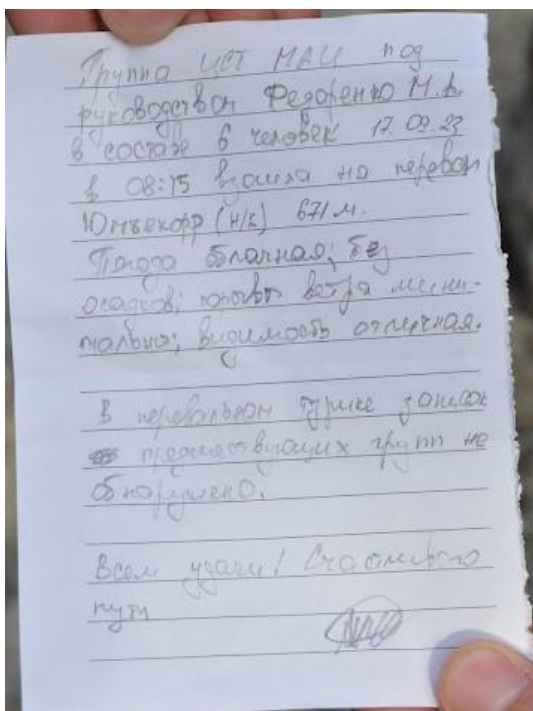 Группа ЦСТ МАИ под
руководством Федоренко М.А.
в составе 6 человек 17.07.23
в 08:15 взошла на перевал
Юмъекорр (н/к) 671 м.
Погода облачная; без
осадков; порывы ветра мини-
мальны; видимость отличная.
В перевальном турике записок
предшествующих групп не
обнаружено.
Всем удачи! Счастливого
пути